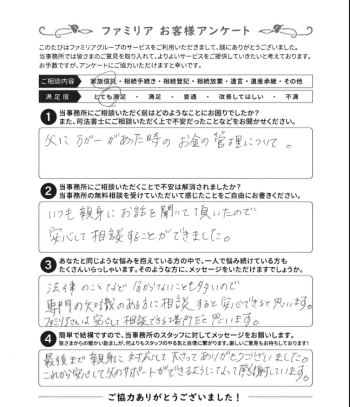 ファミリア お客様アンケート
このたびはファミリアグループのサービスをご利用いただきまして、誠にありがとうございました。
当事務所では皆さまのご意見を取り入れて、よりよいサービスをご提供していきたいと考えております。
お手数ですが、アンケートにご協力いただけますと幸いです。
ご相談内容 家族信託・相続手続き・相続登記・相続放棄・遺言・遺産承継・その他
満足度 とても満足 ・ 満足 ・ 普通 ・ 改善してほしい ・ 不満
1 当事務所にご相談いただく前はどのようなことにお困りでしたか？
また、司法書士にご相談いただく上で不安だったことなどをお聞かせください。
父に万が一があった時のお金の管理について。
2 当事務所にご相談いただくことで不安は解消されましたか？
当事務所の無料相談を受けていただいて感じたことをご自由にお書きください。
いつも親身にお話を聞いて頂いたので
安心して相談することができました。
3 あなたと同じような悩みを抱えている方の中で、一人で悩み続けている方も
たくさんいらっしゃいます。そのような方に、メッセージをいただけますでしょうか。
法律のことなど分からないことも多いので
専門の知識のある方に相談すると安心できると思います。
ファミリアさんは安心して相談できる場所だと思います。
4 簡単で結構ですので、当事務所のスタッフに対してメッセージをお願いします。
皆さまからの暖かい励ましが、何よりもスタッフのやる気と自信に繋がります。厳しいご意見もお待ちしております！
最後まで親身に対応して下さってありがとうございました。
これから安心して父のサポートができるようになって感謝しています。
ご協力ありがとうございました！